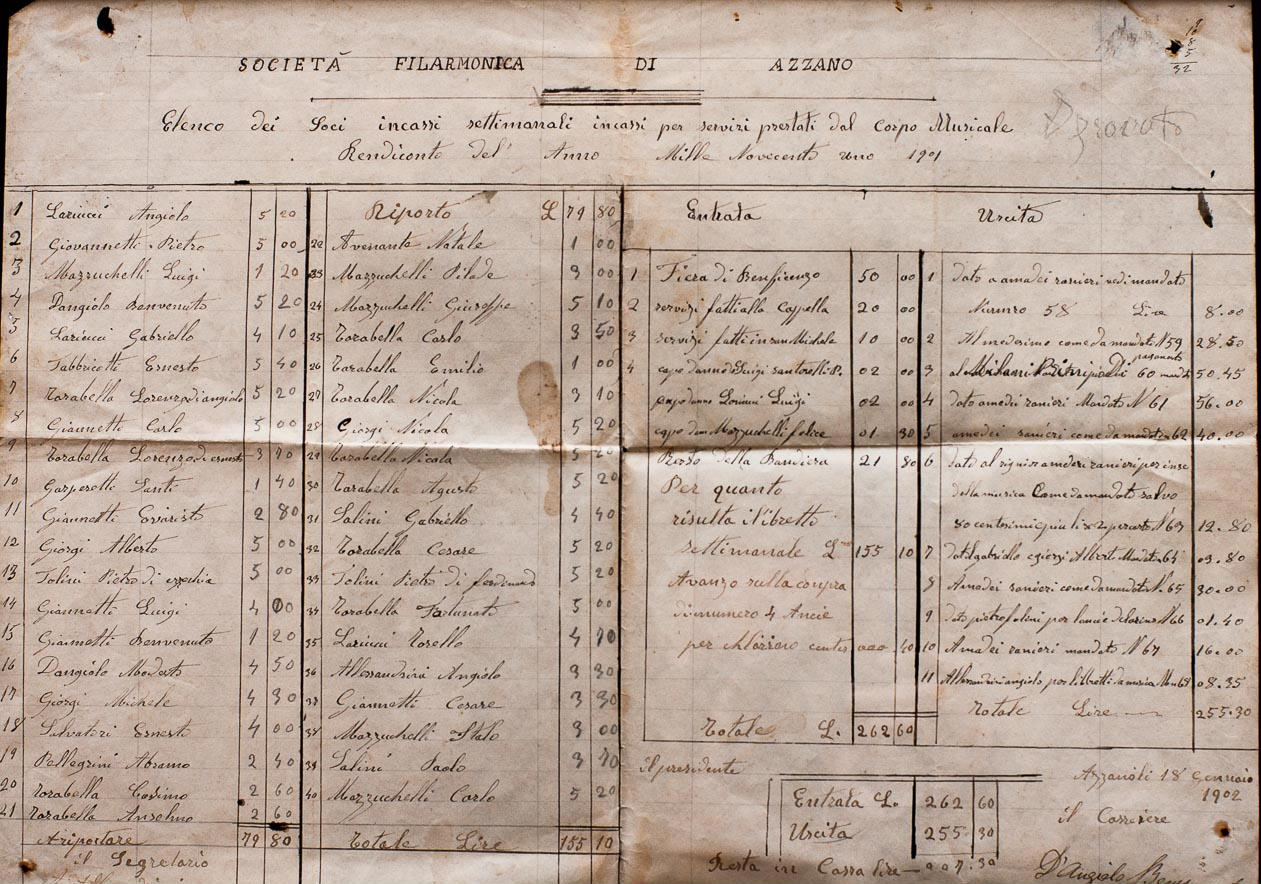 SOCIETÁ FILARMONICA DI AZZANO
Elenco dei Soci incassi settimanali incassi per servizi prestati dal Corpo Musicale
Rendiconto del' Anno Mille Novecento uno 1901
1 Larincci Angiolo 5 20
2 Giovannetti Pietro 5 00
3 Mazzuchelli Luigi 1 20
4 Dangiolo Benvenuto 5 20
5 Larincci Gabriello 4 10
6 Fabbricotti Ernesto 5 40
7 Tarabella Lorenzo di angiolo 5 20
8 Giannetti Carlo 5 00
9 Tarabella Lorenzo di ernesto 3 70
10 Gasperetti Santi 1 40
11 Giannetti Evaristo 2 80
12 Giorgi Alberto 5 00
13 Folini Pietro di 5 00
14 Giannetti Luigi 4 00
15 Giannetti Benvenuto 1 20
16 Dangiolo Modesto 4 50
17 Giorgi Michele 4 30
18 Salvatori Ernesto 4 00
19 Pellegrini Abramo 2 40
20 Tarabella Cosimo 2 60
21 Tarabella Anselmo 2 60
A riportare 79 80
il Segretario
Riporto L 79 80
22 Avenante Natale 1 00
23 Mazzuchelli Pilade 3 00
24 Mazzuchelli Giuseppe 5 10
25 Tarabella Carlo 3 50
26 Tarabella Emilio 1 00
27 Tarabella Nicola 3 10
28 Giorgi Nicola 5 20
29 Tarabella Nicola 5 20
30 Tarabella Agusto 5 20
31 Salini Gabriello 4 40
32 Tarabella Cesare 5 20
33 Folini Pietro di ferdinando 5 20
34 Tarabella Fortunato 5 00
35 Larincci Torello 4 70
36 Allessandrini Angiolo 3 30
37 Giannetti Cesare 3 30
38 Mazzuchelli Italo 3 00
39 Salini Paolo 3 70
40 Mazzuchelli Carlo 5 20
Totale Lire 155 10
Entrata
1 Fiera di 50 00
2 servizi fatti alla Cappella 20 00
3 servizi fatti in san Michele 10 00
4 capo danno Luigi santarelli P. 02 00
capo danno Larincci Luigi 02 00
capo dan Mazzuchelli felice 01 30
Resto della Bandiera 21 80
Per quanto
risulta il libretto
settimanale L. 155 10
Avanzo sulla compra
di numero 4 Ancie
per centes 000 40
Totale L. 262 60
Uscita
1 dato a amadei ranieri vedi mandato
Numero 58 Lire 8.00
2 Al medesimo come da mandato N 59 28.50
3 al Milani 60 50.45
4 dato amadei ranieri Mandato N 61 56.00
5 amadei ranieri come da mandato 62 40.00
6 dato al signor amadei ranieri per
della musica Come da mandato salvo
80 centesimi N 63 12.80
7 Alberto Mandato 64 03.80
8 Amadei ranieri come da mandato N. 65 30.00
9 dato pietro folini per N 66 01.40
10 Amadei ranieri mandato N 67 16.00
11 Allessandrini angiolo per libretti 68 08.35
Totale Lire 255.30
il presidente
Entrata L. 262 60
Uscita 255 30
Resta in Cassa lire 007.30
Azzano li 18 Gennaio
1902
il Cassiere
D'Angiolo